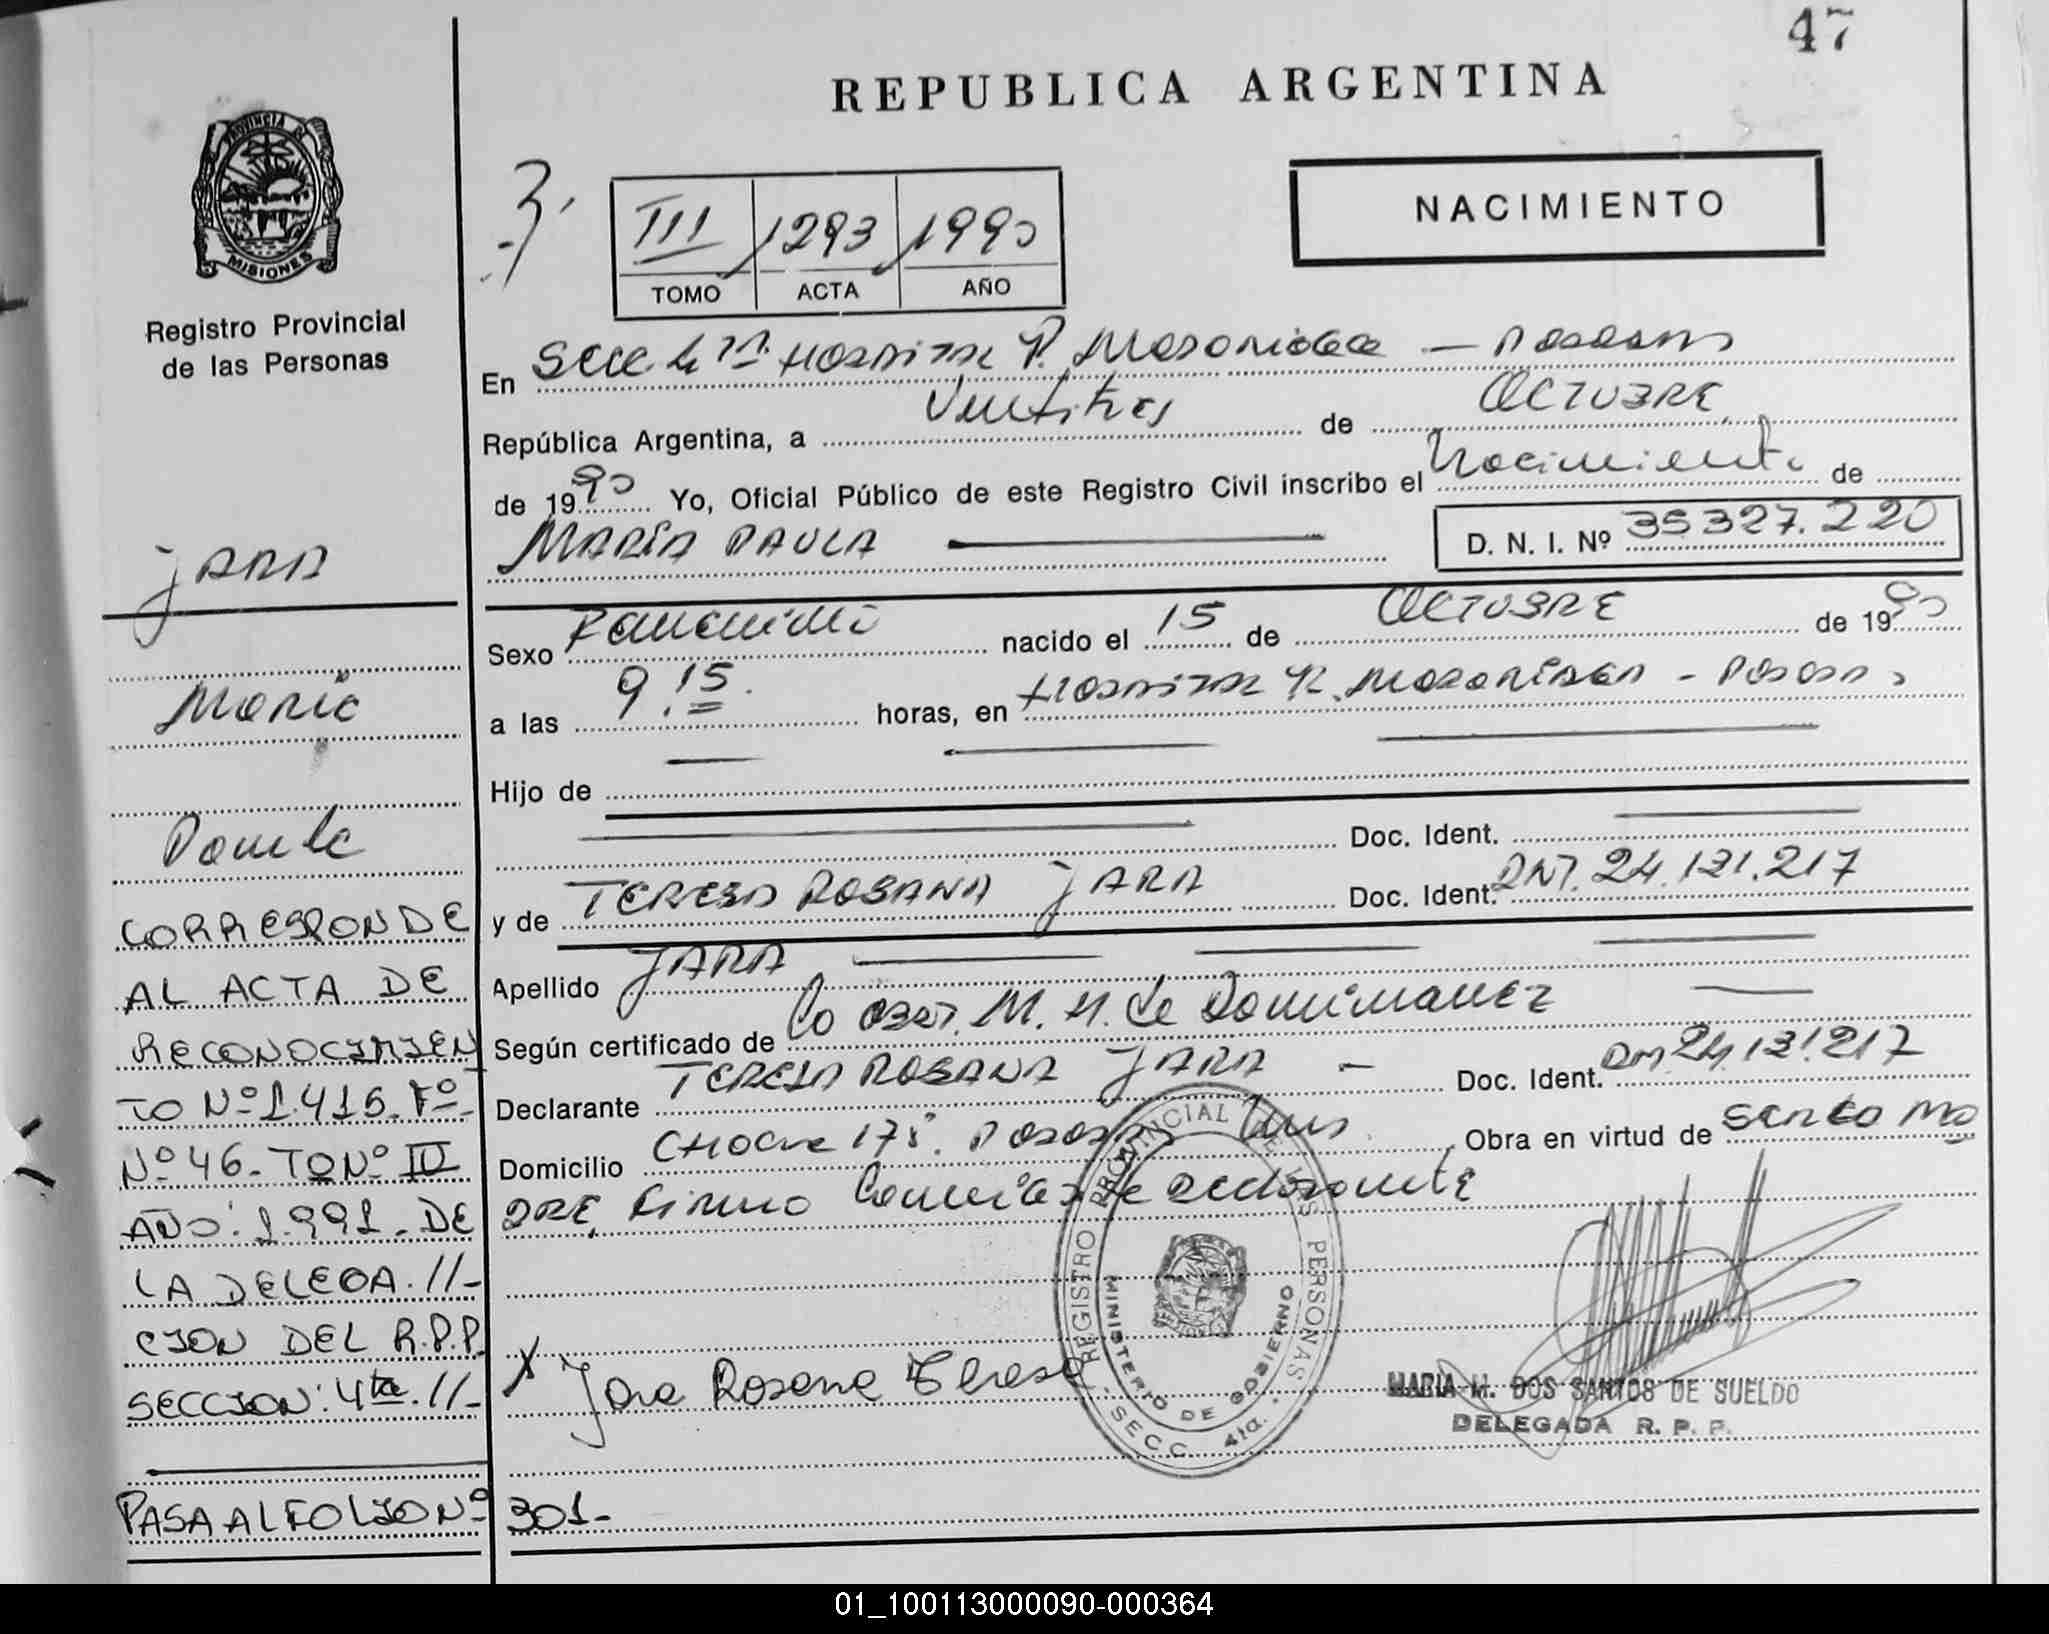 47
REPUBLICA ARGENTINA
NACIMIENTO
PROVINCIA DE
MISIONES
Registro Provincial
de las Personas
III 1293 1990
TOMO ACTA AÑO
En Secc 4ta Hospital R. Madariaga — Posadas
República Argentina, a Veintitres de OCTUBRE
de 1990 Yo, Oficial Público de este Registro Civil inscribo el Nacimiento de
MARÍA PAULA D. N. I. Nº 35327.220
Sexo Femenino nacido el 15 de OCTUBRE de 1990
a las 9.15. horas, en HOSPITAL R. MADARIAGA - POSADAS
Hijo de
Doc. Ident.
y de TERESA ROSANA JARA Doc. Ident. DNI. 24.131.217
Apellido JARA
Según certificado de La OBST. M. H. de
Declarante TERESA ROSANA JARA — Doc. Ident. DNI 24.131.217
Domicilio 175. POSADAS Mns. Obra en virtud de ser la MA
DRE. Firma Conmigo la declarante
X Jara Rosana Teresa
REGISTRO PROVINCIAL DE LAS PERSONAS
MINISTERIO DE GOBIERNO
- SECC. 4ta. -
MARIA M. DOS SANTOS DE SUELDO
DELEGADA R. P. P.
JARA
María
Paula
CORRESPONDE
AL ACTA DE
RECONOCIMIEN
TO Nº 1.415. Fº
Nº 46 - TO Nº IV
AÑO: 1.991. DE
LA DELEGA.//-
CION DEL R.P.P.
SECCION: 4ta.//-
PASA AL FOLIO Nº 301-
01_100113000090-000364